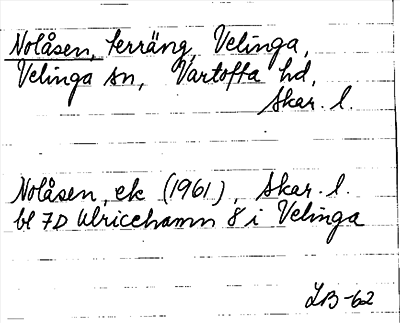 Nolåsen, terräng, Velinga,
Velinga sn, Vartofta hd,
Skar. l.
Nolåsen, ek (1961), Skar. l.
bl 7D Ulricehamn 8 i Velinga
LB-62